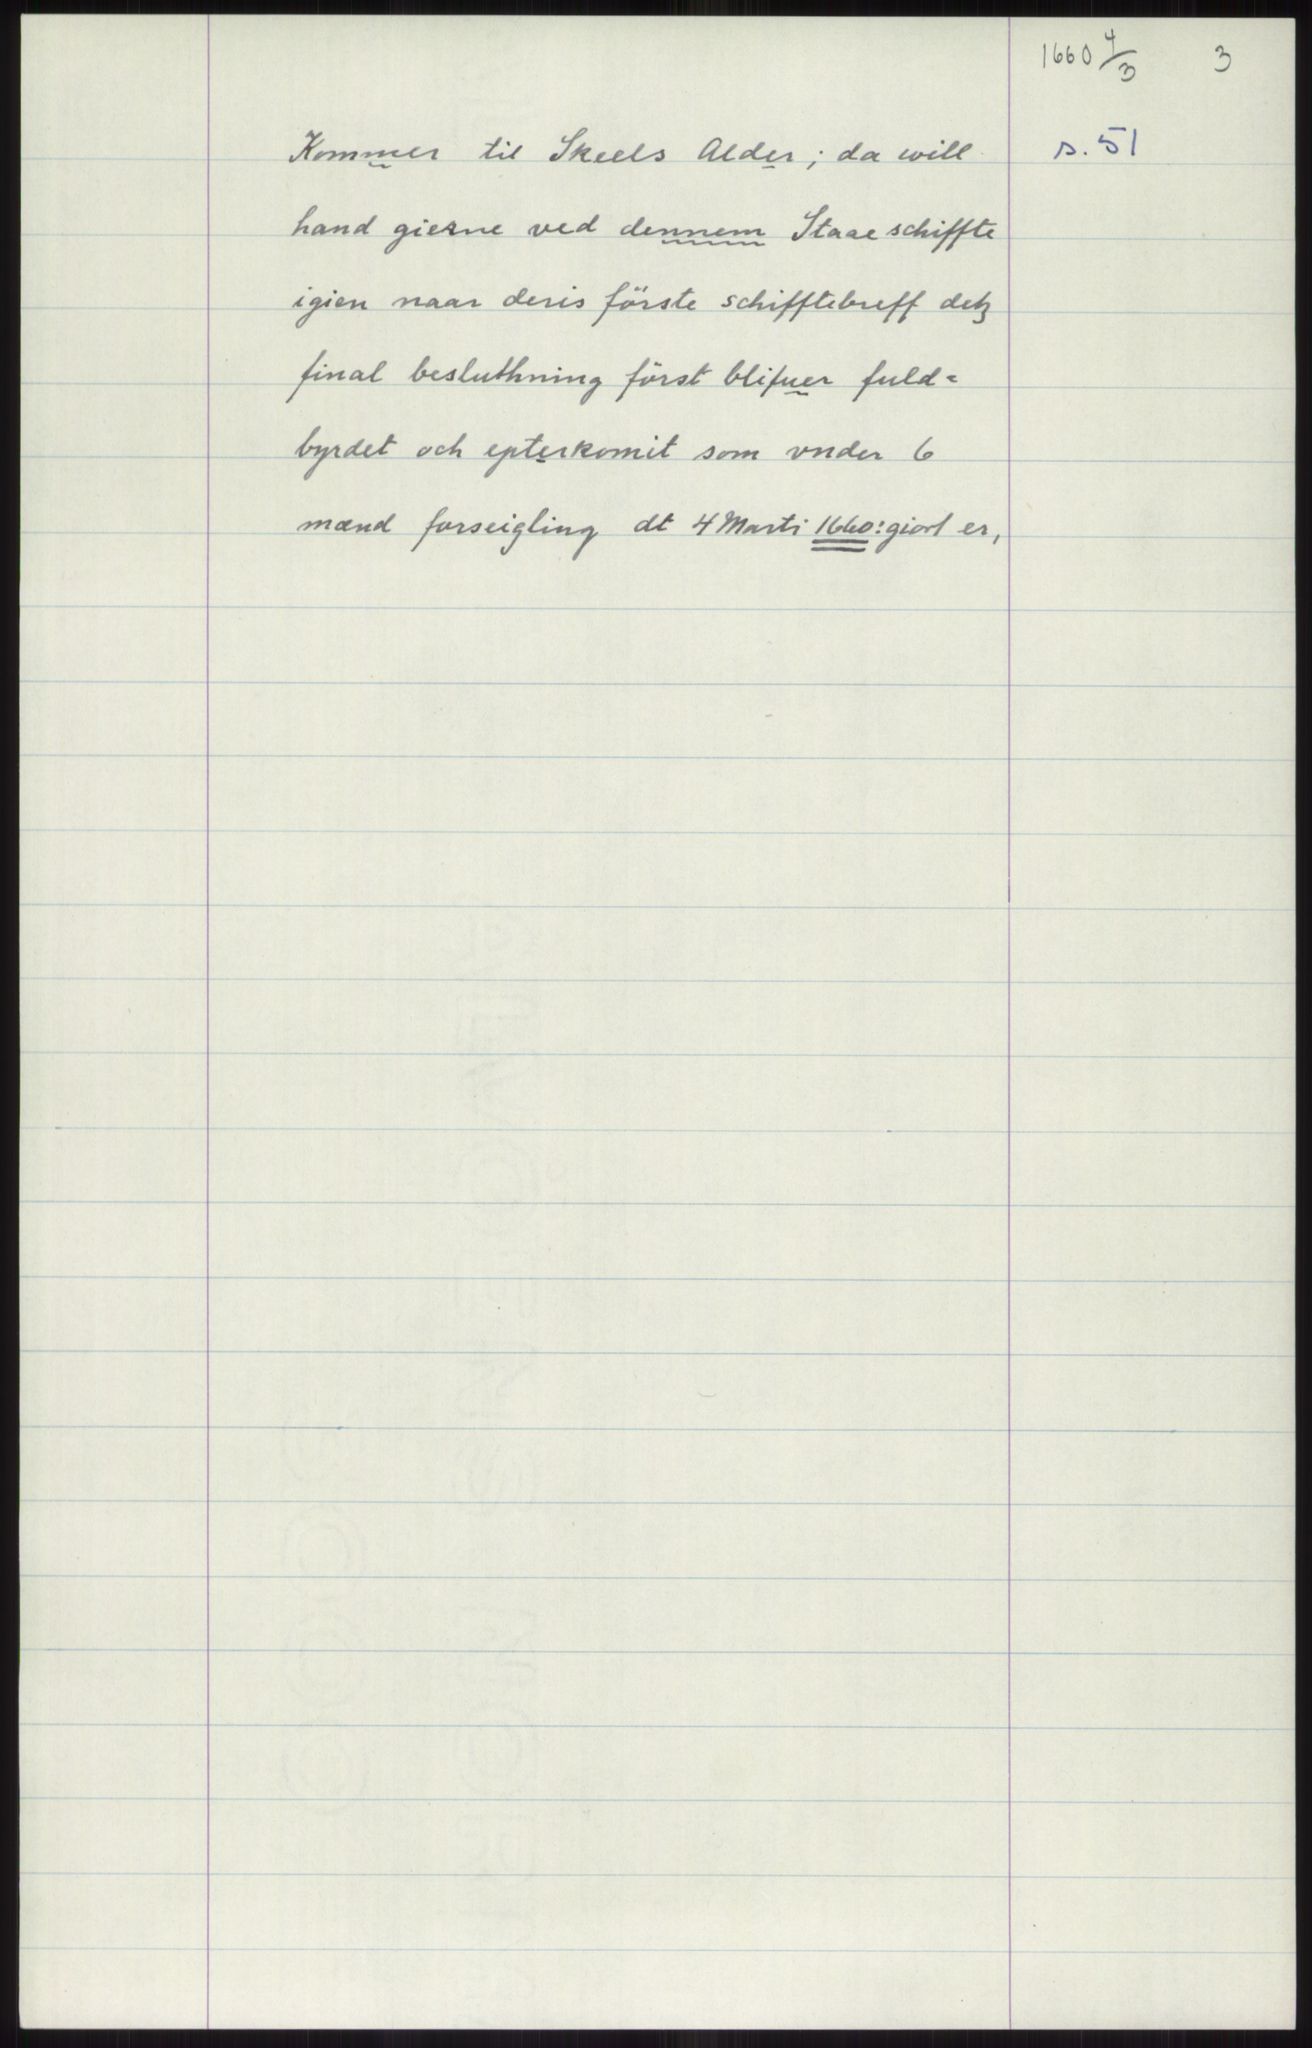 1660 4/3 3
Kommer til Skeels Alder; da will s. 51
hand gierne ved dennem Staae schiffte
igien naar deris förste schifftebreff detz
final besluthning först blifuer fuld=
byrdet och epterkomit som vnder 6
mænd forseigling dt 4 Marti 1660: giort er,